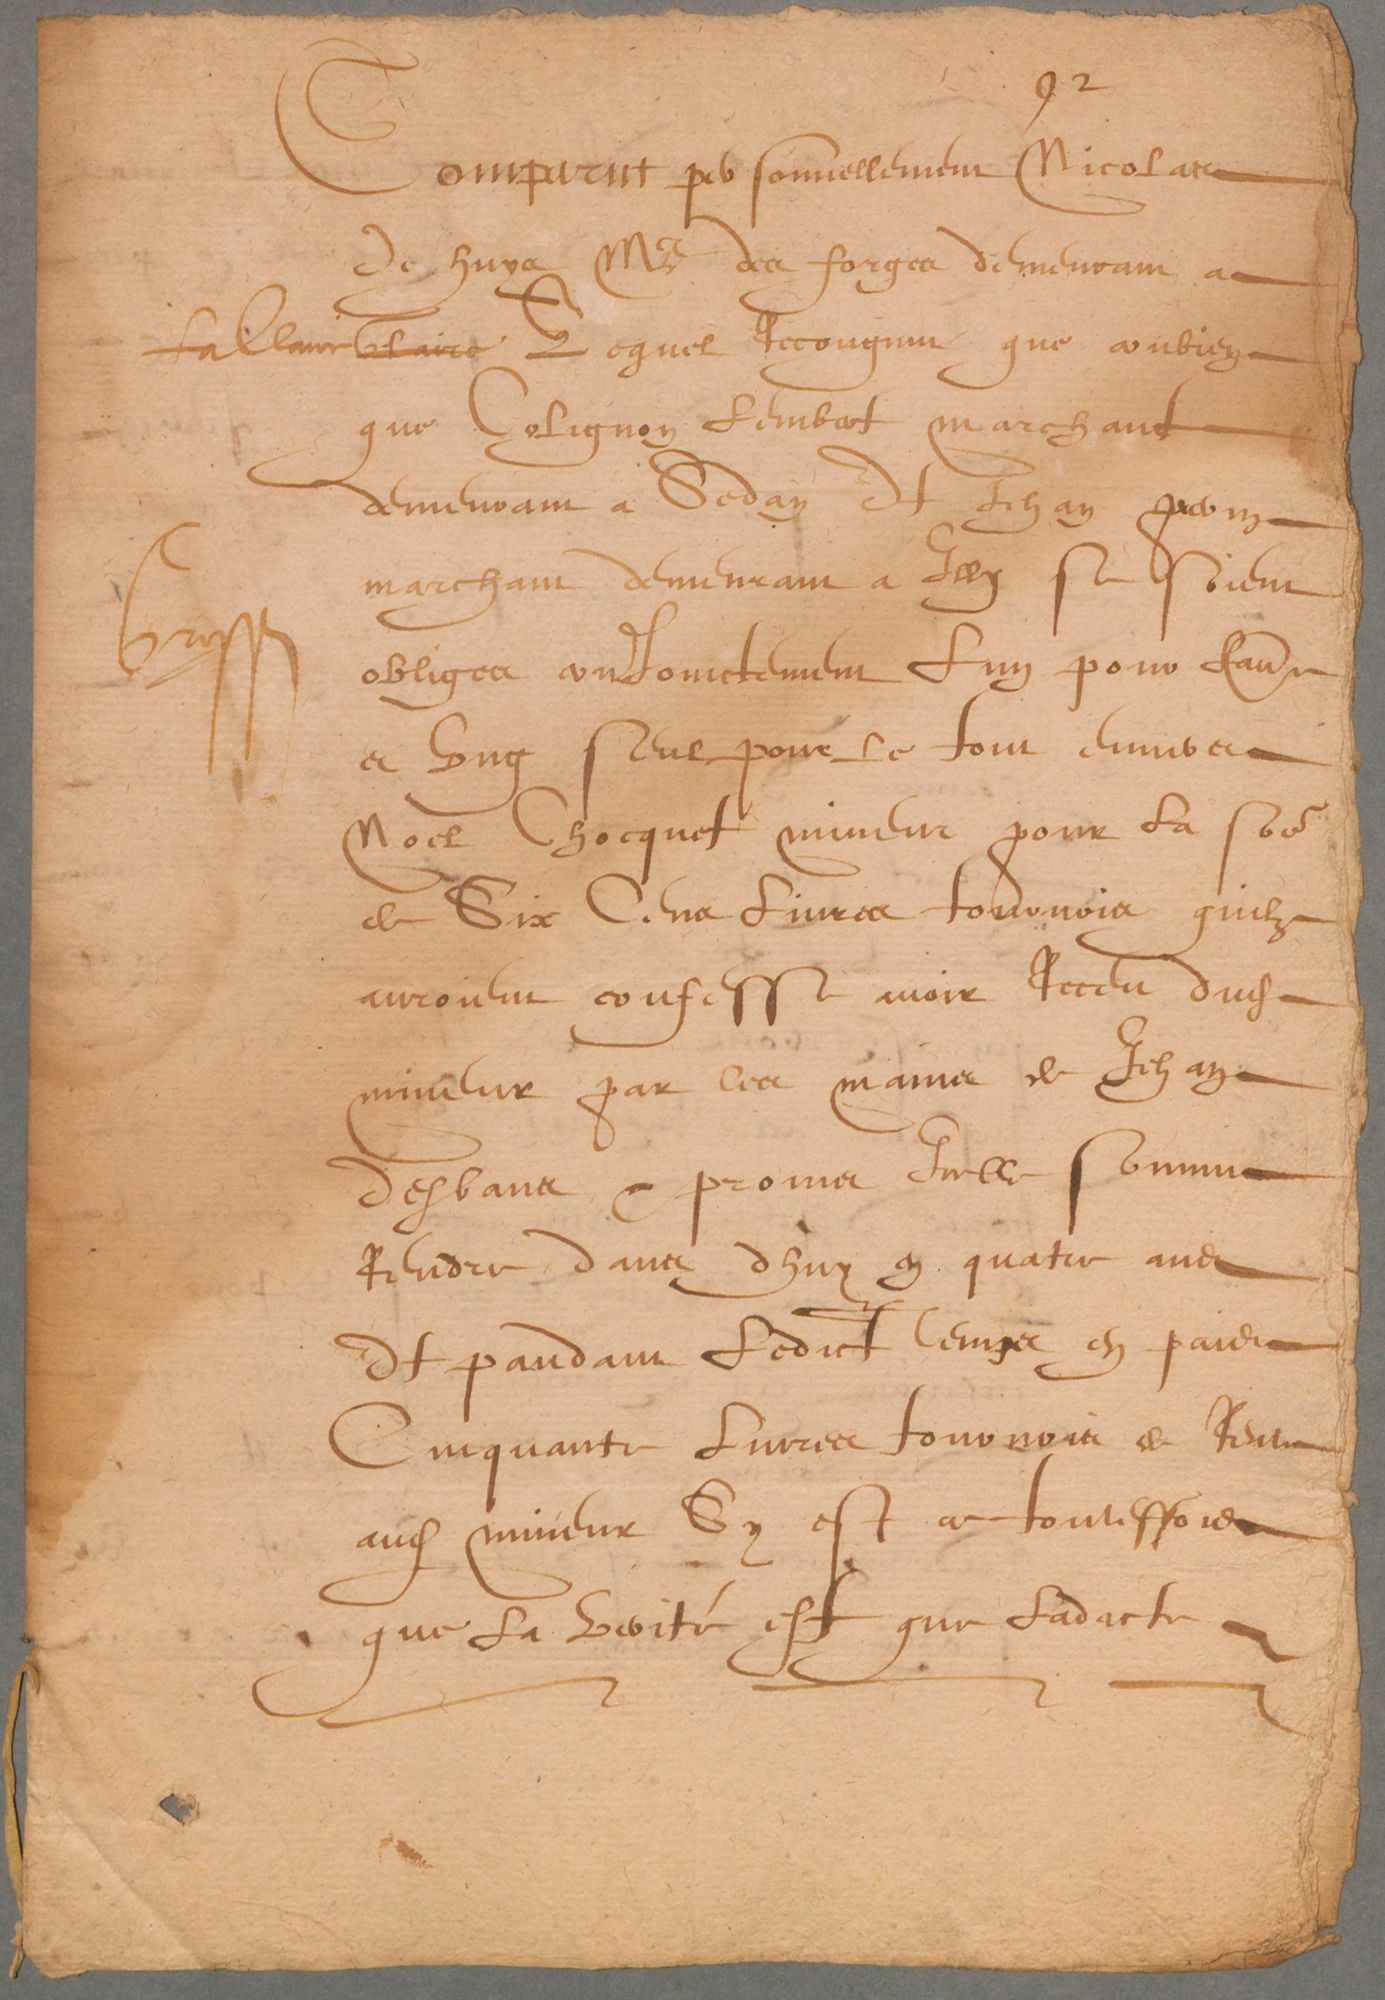 92
Comparut personnellement Nicolas
de huye Mre des forges demeurant a
la Claire Lequel Recougnut que conbien
que Colignon Lembert marchant
demeurant a Sedan Et Jehan
marchant demeurant a se soient
obliges conJoinctement L'un pour l'au're
et Ung seul pour le tout envers
Noel Chocquet mineur pour La soe
de Six Cens Livres tournois quilz
auroient confesse avoir Receu dud
mineur par les mains de Jehan
desbans & promis Icelle somme
Rendre dans dhuy en quatre ans
Et pandant Ledict temps en paier
Cinquante Livres tournois de Rente
aud mineur Sy est ce touteffois
que La verité est que Ladicte